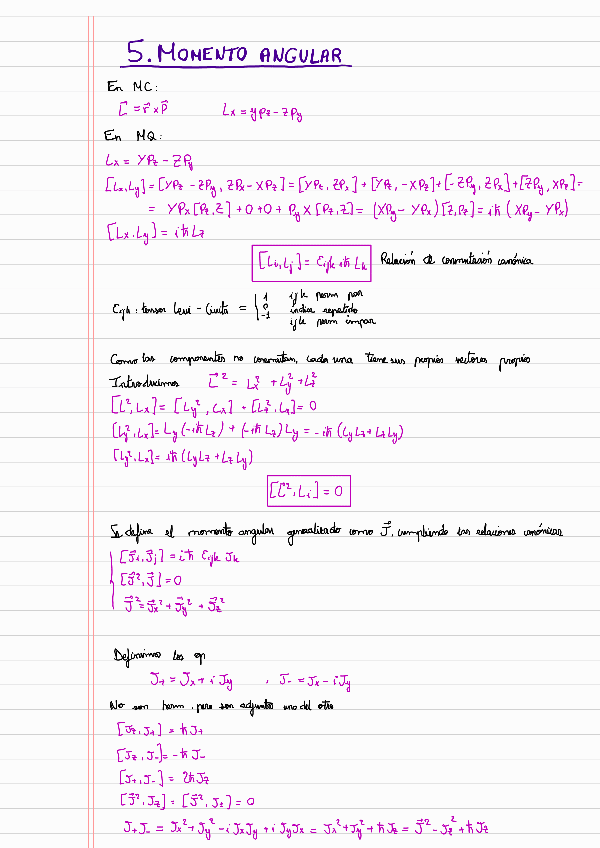 5. MOMENTO ANGULAR
En MC:
L⃗ = r⃗ x p⃗ Lx = ypz - zpy
En MQ:
Lx = YPz - ZPy
[Lx,Ly] = [YPz - ZPy, ZPx - XPz] = [YPz, ZPx] + [YPz, -XPz] + [-ZPy, ZPx] + [ZPy, XPz] =
= YPx [Pz,Z] + 0 + 0 + Py X [Pz,Z] = (XPy - YPx) [Z,Pz] = iħ (XPy - YPx)
[Lx,Ly] = iħ Lz
[Li,Lj] = εijk iħ Lk Relación de conmutación canónica
εijk : tensor Levi - Civita = { 1 ijk perm par
0 índice repetido
-1 ijk perm impar
Como las componentes no conmutan, cada una tiene sus propios vectores propios
Introducimos L⃗² = Lx² + Ly² + Lz²
[L², Lx] = [Ly², Lx] + [Lz², Lx] = 0
[Ly², Lx] = Ly (-iħLz) + (-iħLz) Ly = -iħ (LyLz + LzLy)
[Lz², Lx] = iħ (LyLz + LzLy)
[L⃗², Li] = 0
Se define el momento angular generalizado como J⃗, cumpliendo las relaciones canónicas
[J⃗i, J⃗j] = iħ εijk Jk
[J⃗², J⃗] = 0
J⃗² = J⃗x² + J⃗y² + J⃗z²
Definimos los op
J+ = Jx + i Jy , J- = Jx - i Jy
No son herm, pero son adjuntos uno del otro
[Jz, J+] = ħ J+
[Jz, J-] = -ħ J-
[J+, J-] = 2ħ Jz
[J⃗², Jz] = [J⃗², J±] = 0
J+J- = Jx² + Jy² - i JxJy + i JyJx = Jx² + Jy² + ħJz = J⃗² - Jz² + ħJz